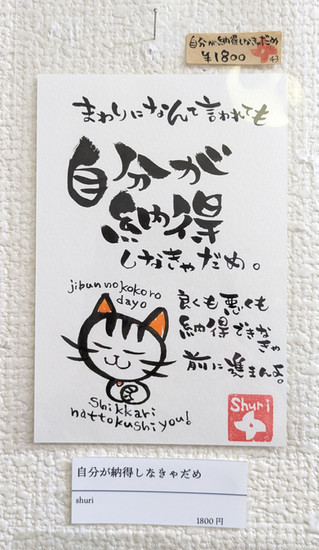 自分が納得しなきゃだめ
¥1800
43
まわりになんて言われても
自分が
納得
しなきゃだめ。
jibun no kokoro
dayo
良くも悪くも
納得できなきゃ
前に進まんよ。
shikkari
nattokushiyou!
Shuri
自分が納得しなきゃだめ
shuri
1800円